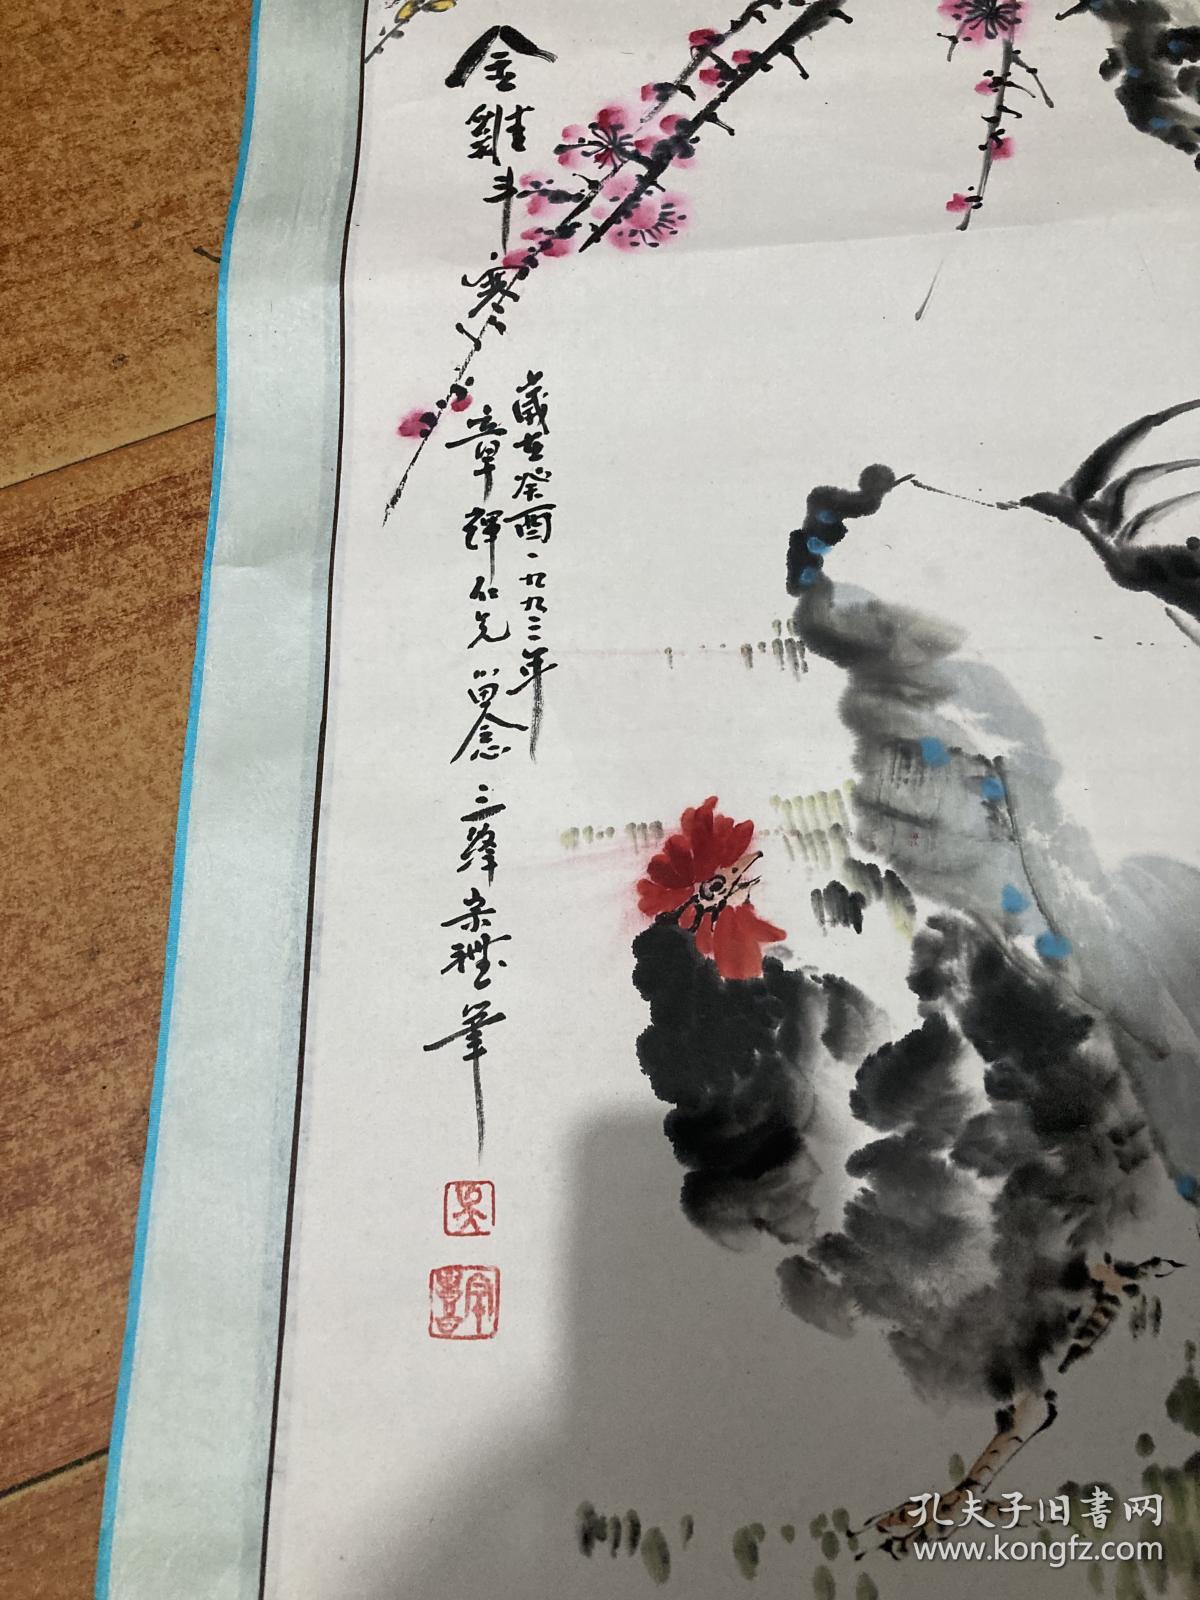 金雞斗寒
歲在癸酉一九九三年
章輝仁兄留念
三絳宗禮筆
吴
孔夫子旧書网
www.kongfz.com